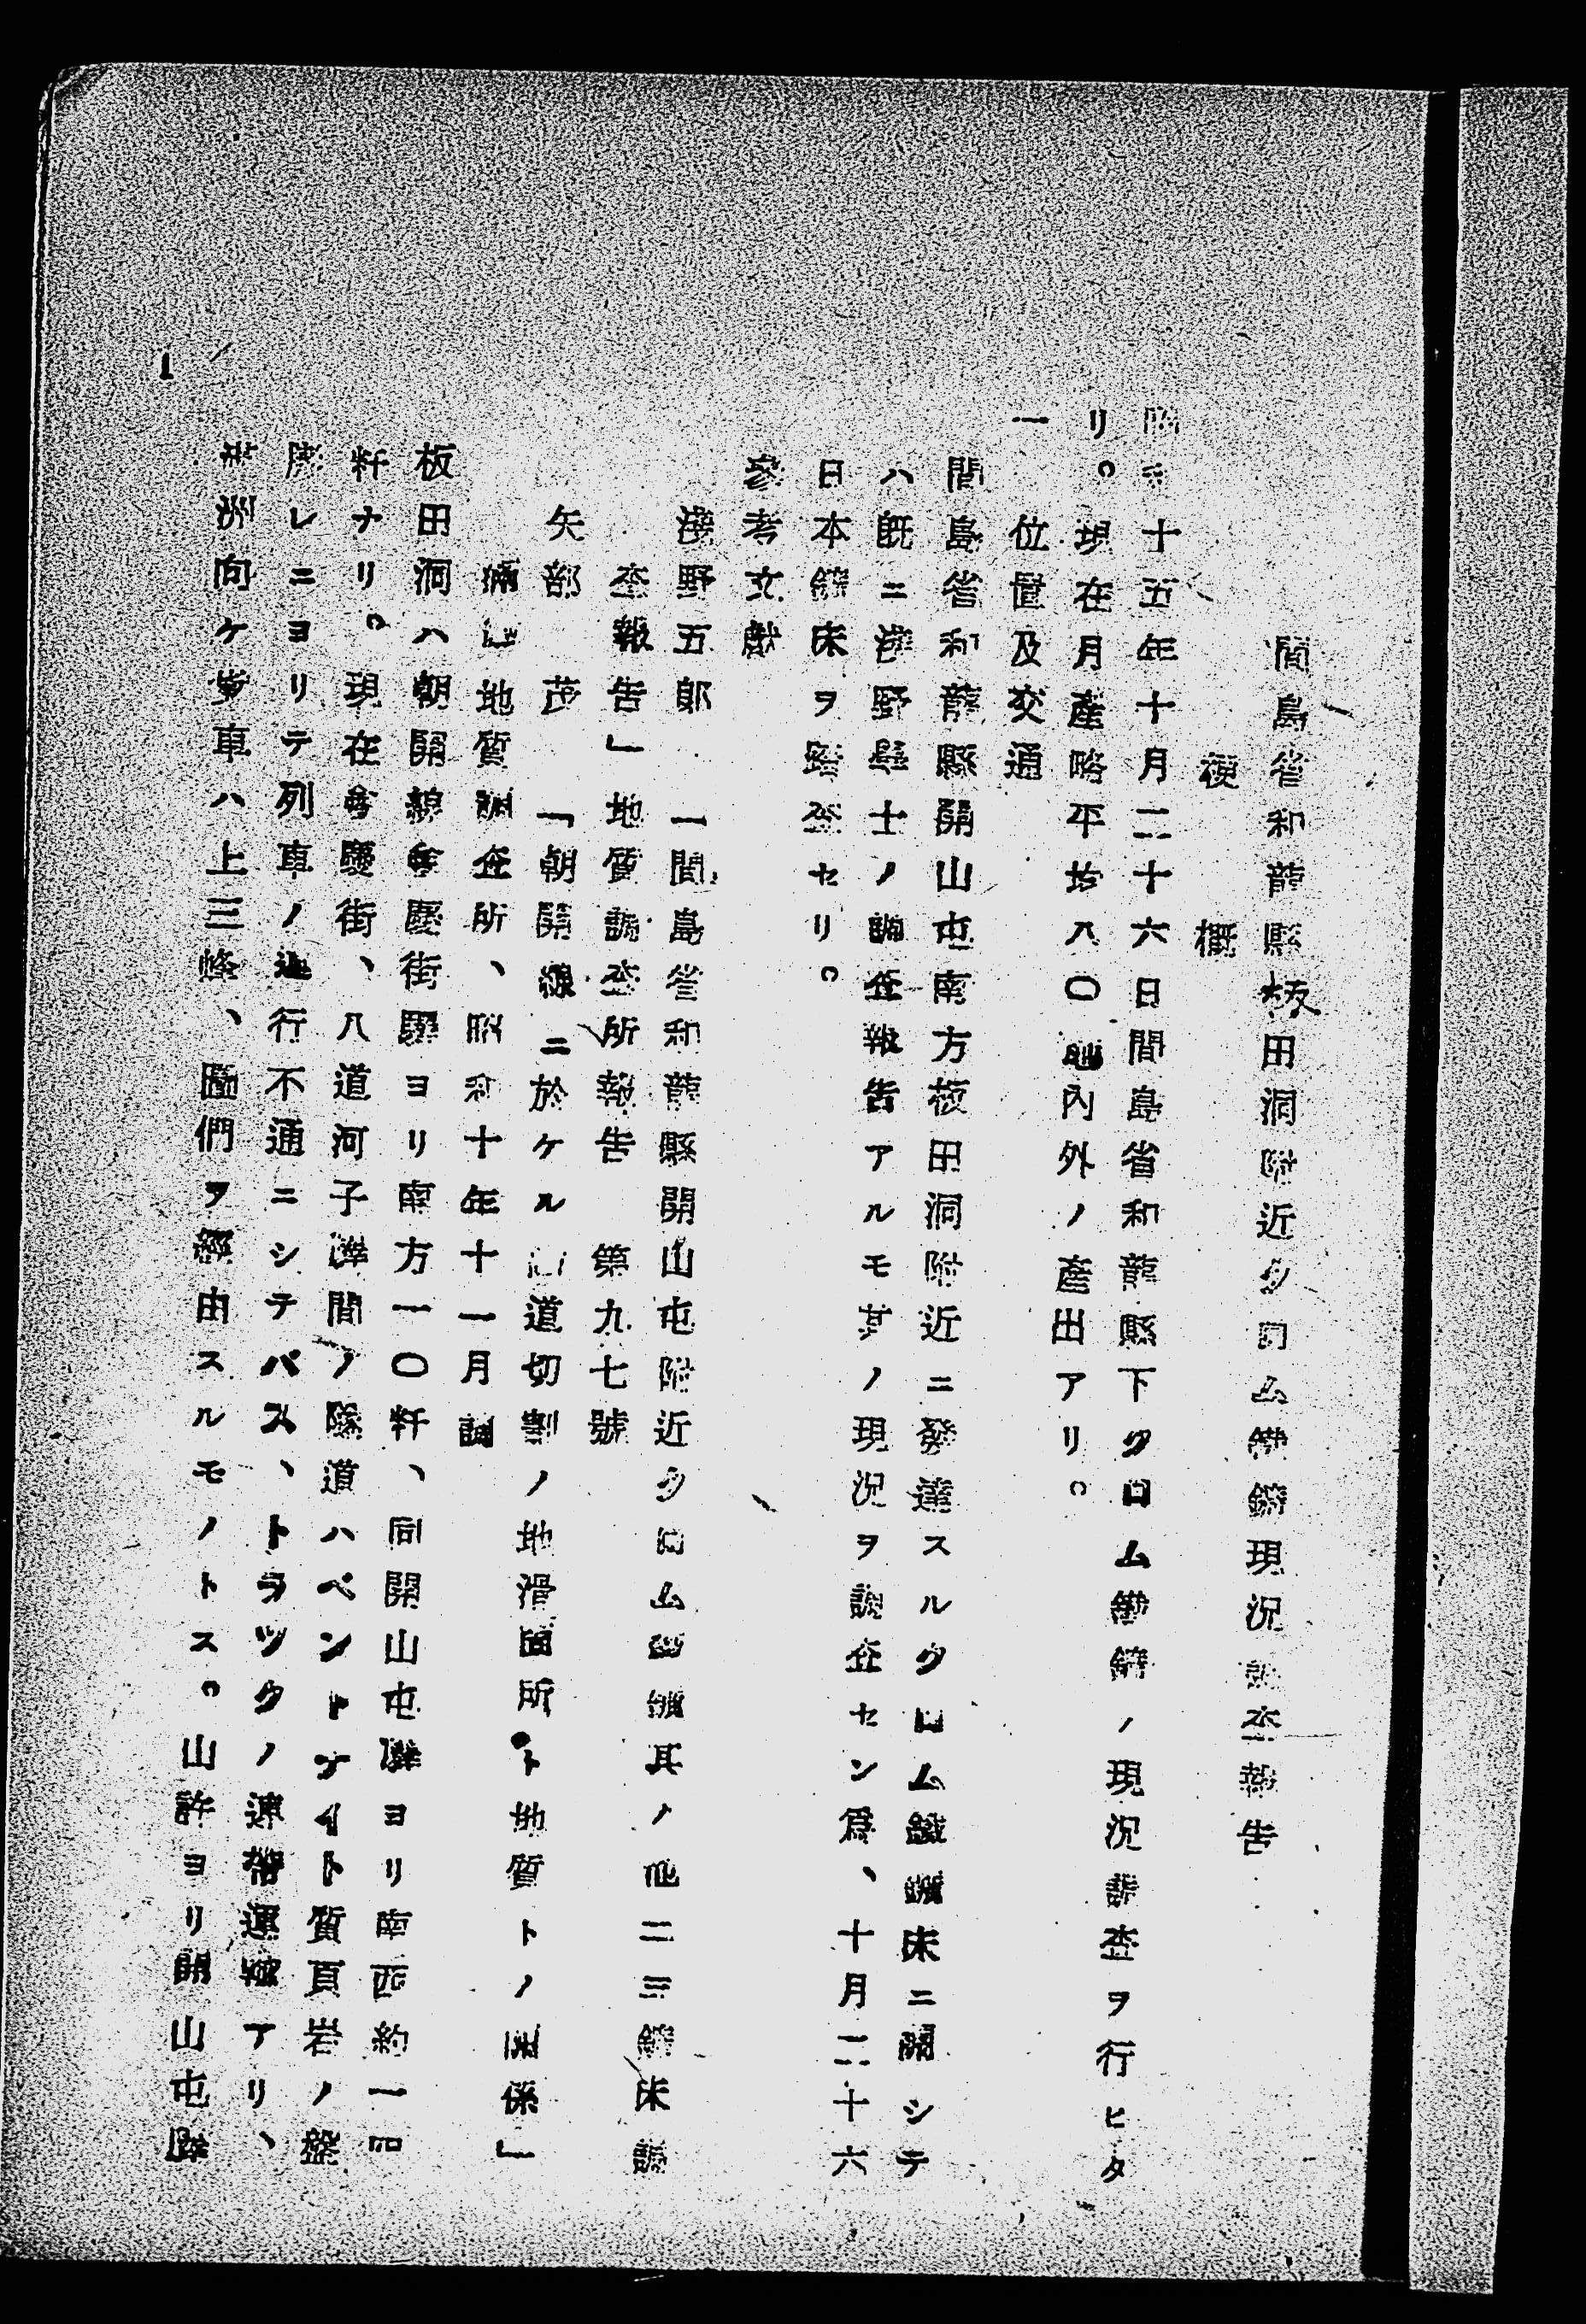 間島省和龍縣板田洞附近クロム鐵鑛現況調査報告
梗概
昭和十五年十月二十六日間島省和龍縣下クロム鐵鑛ノ現況調査ヲ行ヒタ
リ。現在月產略平均八〇噸內外ノ產出アリ。
一 位置及交通
間島省和龍縣開山屯南方板田洞附近ニ發達スルクロム鐵鑛床ニ關シテ
ハ既ニ淺野學士ノ調査報告アルモ其ノ現況ヲ調査セン爲、十月二十六
日本鑛床ヲ踏査セリ。
參考文獻
淺野五郎 「間島省和龍縣開山屯附近クロム鐵鑛其ノ他二三鑛床調
查報告」地質調查所報告 第九七號
矢部茂 「朝開線ニ於ケル 道切割ノ地滑箇所ト地質トノ關係」
滿洲地質調査所、昭和十年十一月調
板田洞ハ朝開線會慶街驛ヨリ南方一〇粁、同開山屯驛ヨリ南西約一四
粁ナリ。現在會慶街、八道河子驛間ノ隧道ハベントナイト質頁岩ノ盤
膨レニヨリテ列車ノ運行不通ニシテバス、トラツクノ連帶運輸アリ、
滿洲向ケ貨車ハ上三峰、圖們ヲ經由スルモノトス。山許ヨリ開山屯驛
1